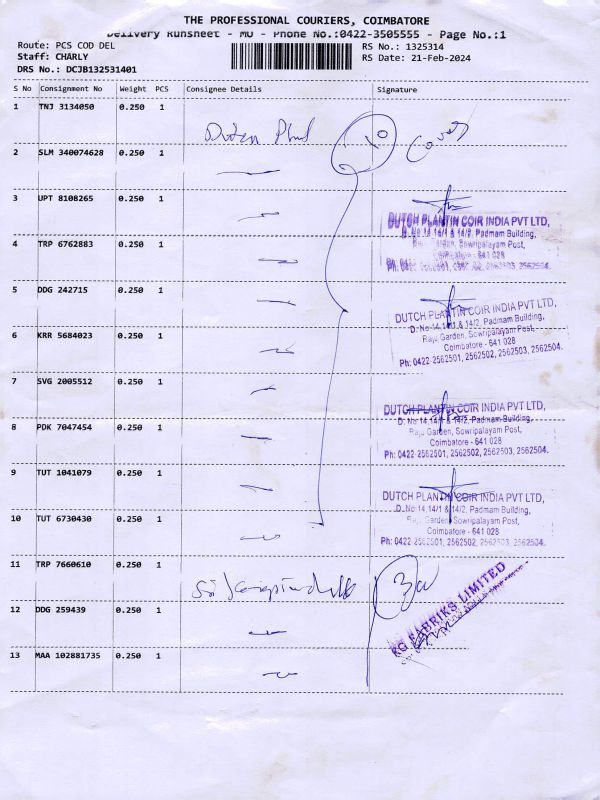 THE PROFESSIONAL COURIERS, COIMBATORE
Delivery Runsheet - MO - Phone No.:0422-3505555 - Page No.:1
Route: PCS COD DEL
RS No.: 1325314
Staff: CHARLY
RS Date: 21-Feb-2024
DRS No.: DCJB132531401
S No Consignment No Weight PCS Consignee Details Signature
1 TNJ 3134050 0.250 1
Dutch 10 Cover
2 SLM 340074628 0.250 1
3 UPT 8108265 0.250 1
DUTCH PLANTIN COIR INDIA PVT LTD,
D. No 14,14/1 & 14/2, Padmam Building,
Garden, Sowripalayam Post,
4 TRP 6762883 0.250 1
Coimbatore - 641 028
Ph: 0422-2562501, 2562502, 2562503, 2562504.
5 DDG 242715 0.250 1
DUTCH PLANTIN COIR INDIA PVT LTD,
D. No 14,14/1 & 14/2, Padmam Building,
Raju Garden, Sowripalayam Post,
6 KRR 5684023 0.250 1
Coimbatore - 641 028
Ph: 0422-2562501, 2562502, 2562503, 2562504.
7 SVG 2005512 0.250 1
DUTCH PLANTIN COIR INDIA PVT LTD,
D. No 14,14/1 & 14/2, Padmam Building,
8 PDK 7047454 0.250 1
Raju Garden, Sowripalayam Post,
Coimbatore - 641 028
Ph: 0422-2562501, 2562502, 2562503, 2562504.
9 TUT 1041079 0.250 1
DUTCH PLANTIN COIR INDIA PVT LTD,
D. No 14,14/1 & 14/2, Padmam Building,
10 TUT 6730430 0.250 1
Raju Garden, Sowripalayam Post,
Coimbatore - 641 028
Ph: 0422-2562501, 2562502, 2562503, 2562504.
11 TRP 7660610 0.250 1
KG FABRIKS LIMITED
12 DDG 259439 0.250 1
13 MAA 102881735 0.250 1